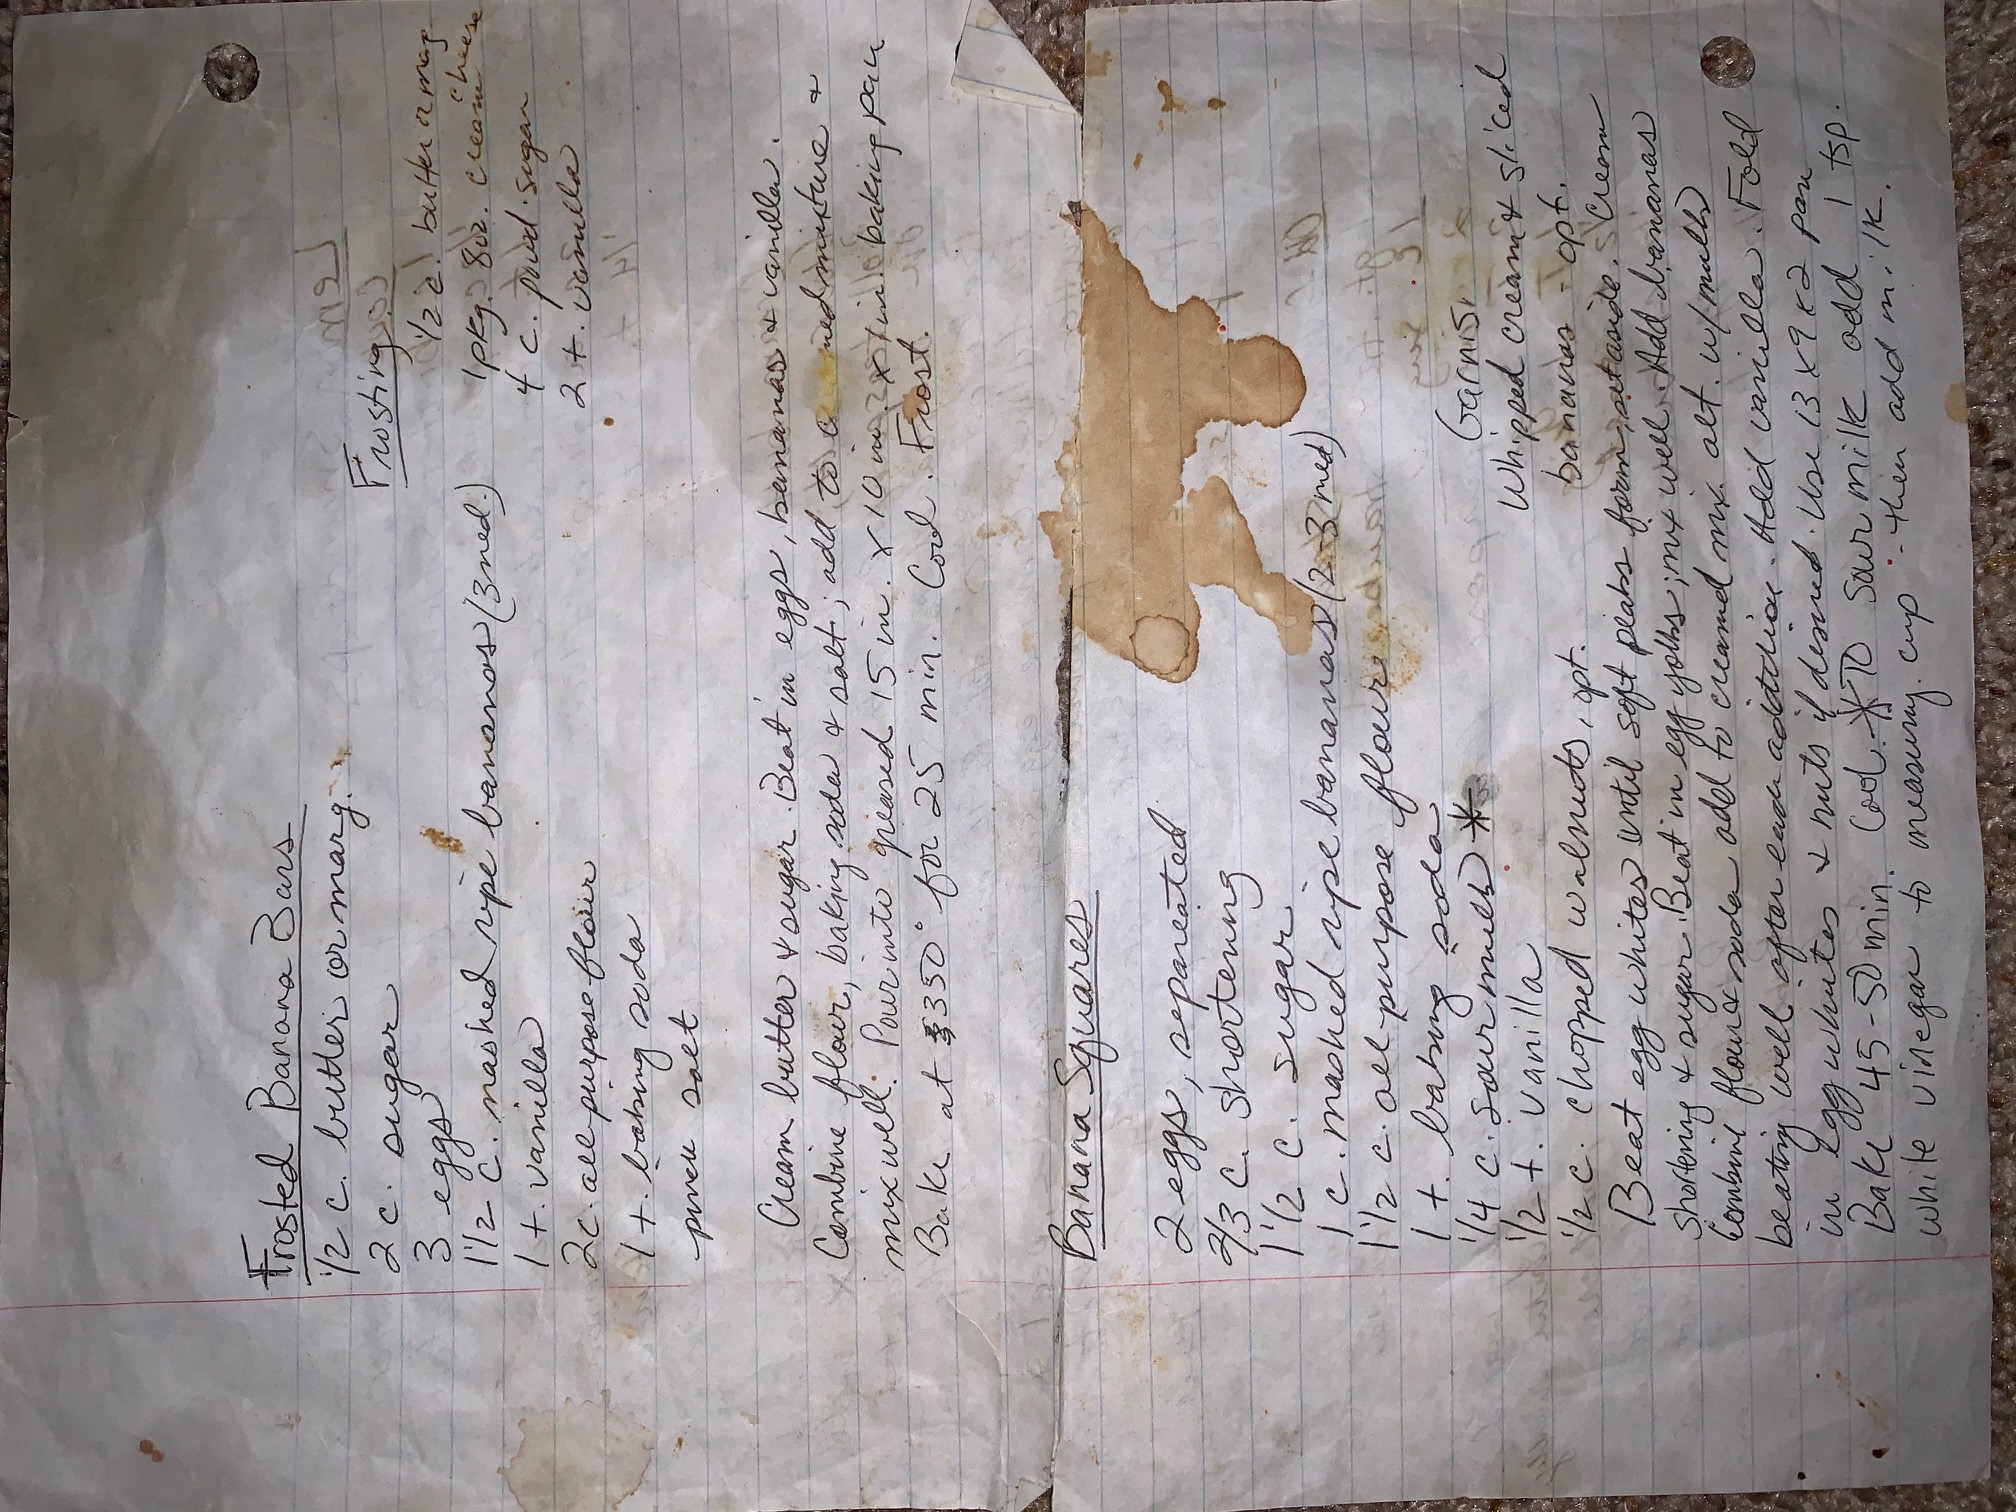 Frosted Banana Bars
1/2 c. butter or marg.
2 c. sugar
3 eggs
1 1/2 c. mashed ripe bananas (3 med.)
1 t. vanilla
2 c. all-purpose flour
1 t. baking soda
pinch salt
Frosting
1/2 c. butter or marg
1 pkg. 8 oz. cream cheese
4 c. powd. sugar
2 t. vanilla
Cream butter & sugar. Beat in eggs, bananas & vanilla.
Combine flour, baking soda & salt; add to mixture &
mix well. Pour into greased 15 in. x 10 in. x 1 in. baking pan
Bake at 350° for 25 min. Cool. Frost.
Banana Squares
2 eggs, separated
2/3 c. shortening
1 1/2 c. sugar
1 c. mashed ripe bananas (2-3 med)
1 1/2 c. all-purpose flour
1 t. baking soda
1/4 c. sour milk *
1/2 t. vanilla
1/2 c. chopped walnuts, opt.
Garnish
Whipped cream & sliced
bananas - opt.
Beat egg whites until soft peaks form; set aside. Cream
shortening & sugar. Beat in egg yolks; mix well. Add bananas
Combine flour & soda add to creamed mix. alt. w/ milk
beating well after each addition. Add vanilla. Fold
in egg whites & nuts if desired. Use 13 x 9 x 2 pan
Bake 45-50 min. Cool. * To sour milk add 1 tsp.
white vinegar to measuring cup - then add milk.